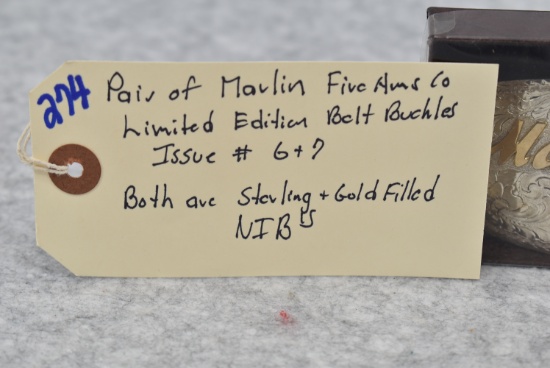 274
Pair of Marlin Fire Arms Co
Limited Edition Belt Buckles
Issue # 6+7
Both are Sterling + Gold Filled
NIB's